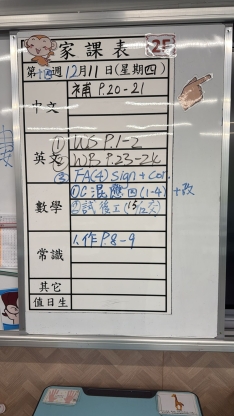 家課表 2F
第十四週 12月11日(星期四)
中文 補 P.20-21
英文 ① WS P.1-2
② WB P.23-24
③ FA(4) sign + cor.
數學 ①C 混應四(1-4) +改
②試後工(15/12交)
常識 1.作 P.8-9
其它
值日生